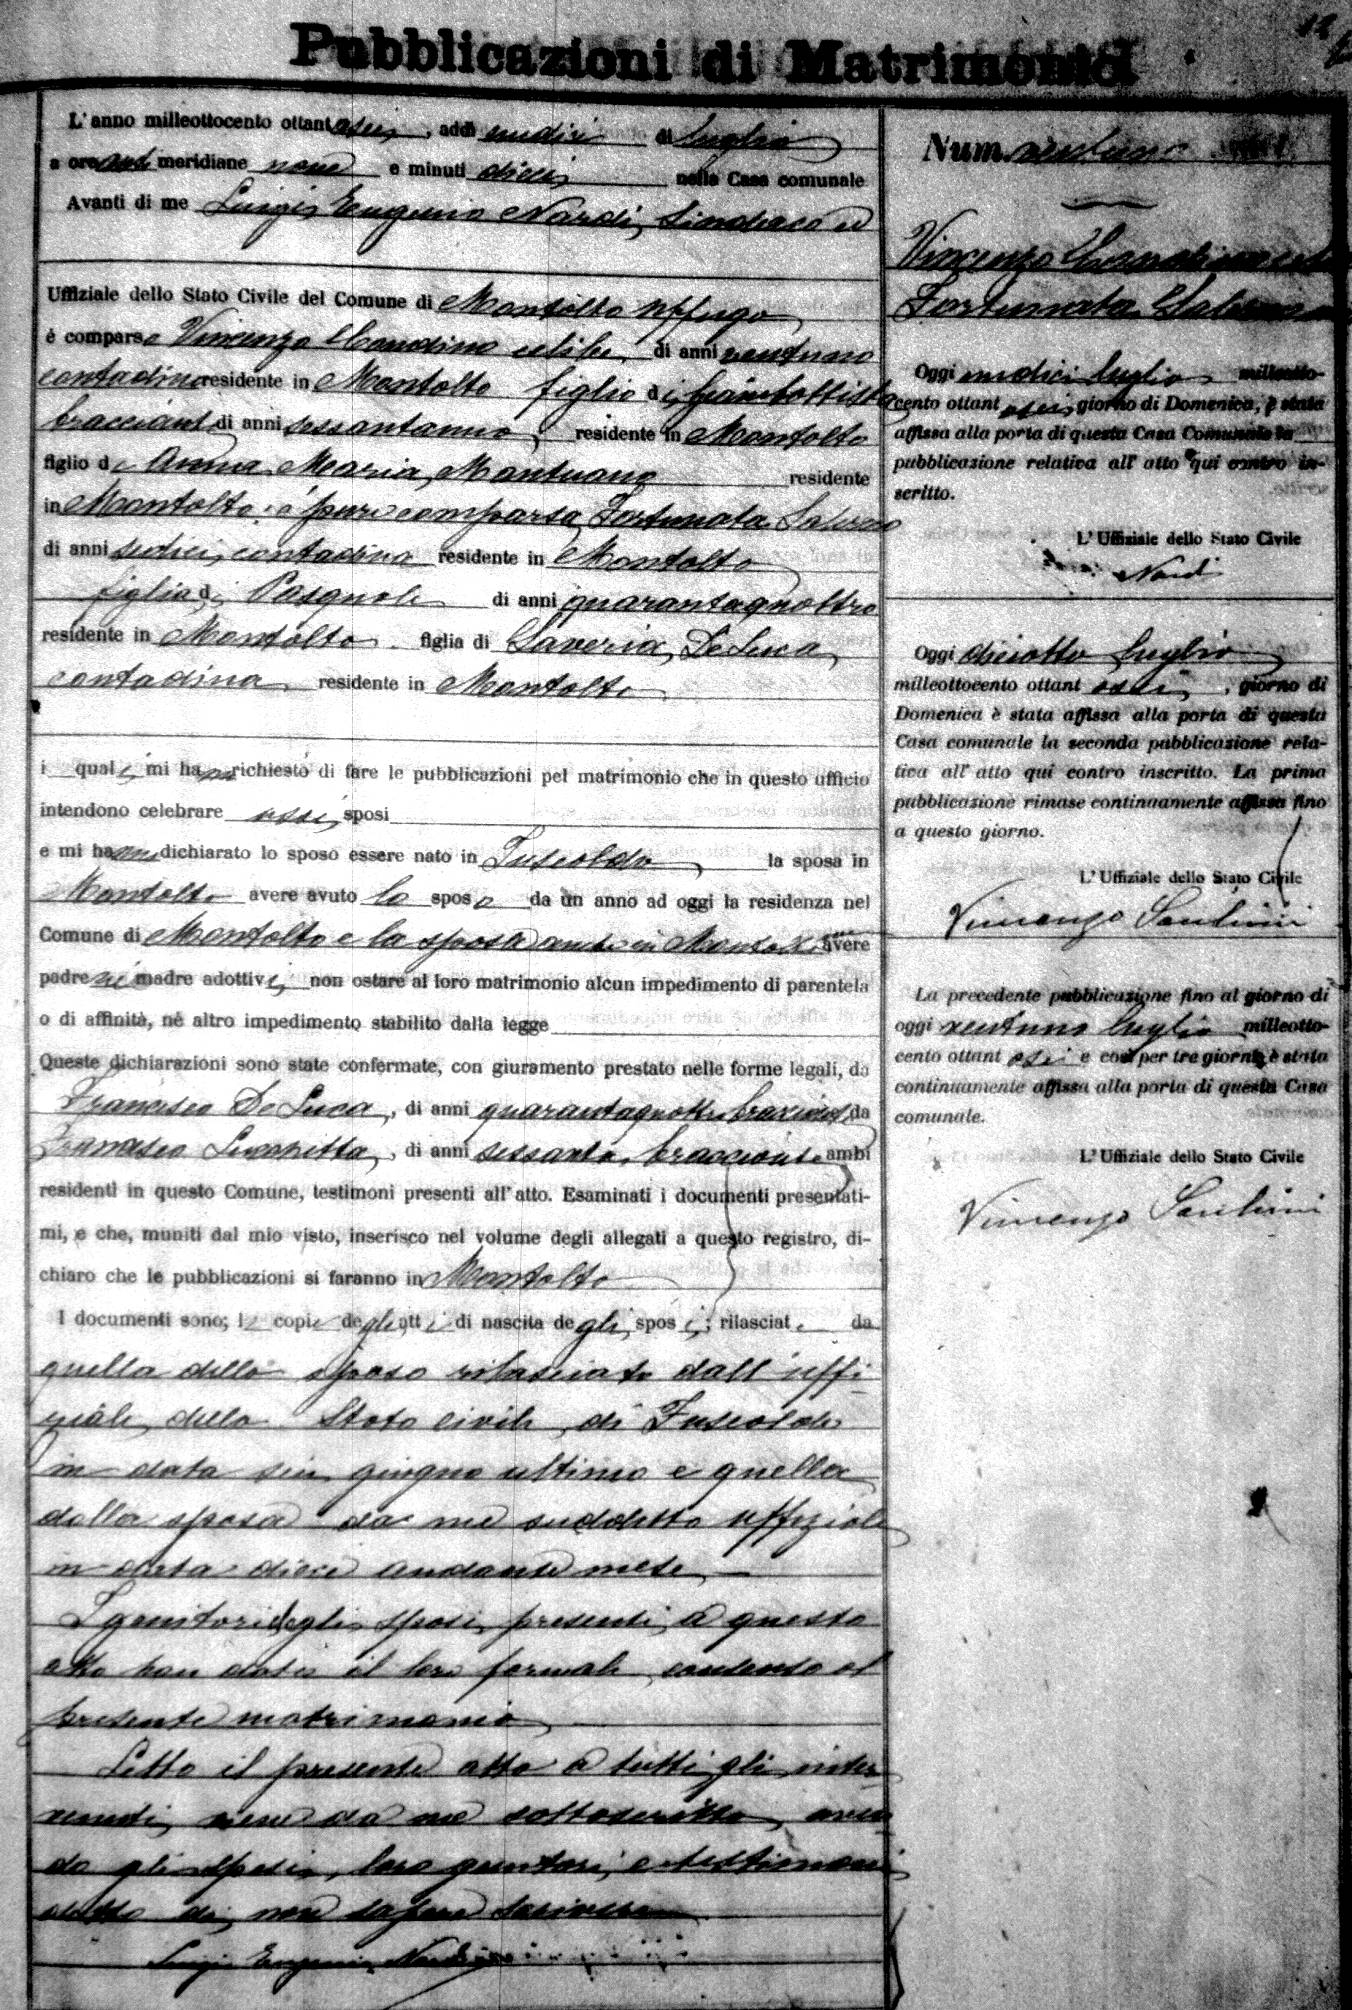 Pubblicazioni di Matrimonio
12
L'anno milleottocento ottantasei, addì undici di luglio
a ore anti meridiane nove e minuti dieci nella Casa comunale
Avanti di me Luigi Eugenio Nardi, Sindaco ed
Uffiziale dello Stato Civile del Comune di Montalto Uffugo
è comparso Vincenzo celibe di anni ventuno
contadino residente in Montalto figlio di Giambattista
bracciante di anni sessantanno, residente in Montalto
figlio di Anna Maria Mantuano residente
in Montalto è pure comparsa Fortunata Salerno
di anni sedici, contadina residente in Montalto
figlia di Pasquale di anni quarantaquattro
residente in Montalto figlia di Saveria De Luca
contadina residente in Montalto
i quali mi hanno richiesto di fare le pubblicazioni pel matrimonio che in questo ufficio
intendono celebrare essi sposi
e mi hanno dichiarato lo sposo essere nato in Fuscaldo la sposa in
Montalto avere avuto lo sposo da un anno ad oggi la residenza nel
Comune di Montalto e la sposa anche in Montalto avere
padre nè madre adottivi, non ostare al loro matrimonio alcun impedimento di parentela
o di affinità, nè altro impedimento stabilito dalla legge
Queste dichiarazioni sono state confermate, con giuramento prestato nelle forme legali, da
Francesco De Luca, di anni quarantaquattro bracciante da
Francesco Lucchetta, di anni sessanta, bracciante ambi
residenti in questo Comune, testimoni presenti all'atto. Esaminati i documenti presentati-
mi, e che, muniti dal mio visto, inserisco nel volume degli allegati a questo registro, di-
chiaro che le pubblicazioni si faranno in Montalto
I documenti sono; le copie degli atti di nascita degli sposi; rilasciate da
quella dello sposo rilasciata dall'uffi-
ziale dello Stato civile di Fuscaldo
in data sei giugno ultimo e quella
della sposa da me suddetto uffiziale
in data dieci andante mese
I genitori degli sposi presenti a questo
atto han dato il loro formale consenso al
presente matrimonio
Letto il presente atto a tutti gli inter-
venuti, viene da me sottoscritto, aven-
do gli sposi, loro genitori, e testimoni
detto di non sapere scrivere
Luigi Eugenio Nardi
Num. ventuno
Vincenzo
Fortunata Salerno
Oggi undici luglio milleotto-
cento ottantasei giorno di Domenica, è stata
affissa alla porta di questa Casa Comunale la
pubblicazione relativa all'atto qui contro in-
scritto.
L'Uffiziale dello Stato Civile
Nardi
Oggi diciotto luglio
milleottocento ottantasei, giorno di
Domenica è stata affissa alla porta di questa
Casa comunale la seconda pubblicazione rela-
tiva all'atto qui contro inscritto. La prima
pubblicazione rimase continuamente affissa fino
a questo giorno.
L'Uffiziale dello Stato Civile
Vincenzo
La precedente pubblicazione fino al giorno di
oggi ventuno luglio milleotto-
cento ottantasei e così per tre giorni è stata
continuamente affissa alla porta di questa Casa
comunale.
L'Uffiziale dello Stato Civile
Vincenzo